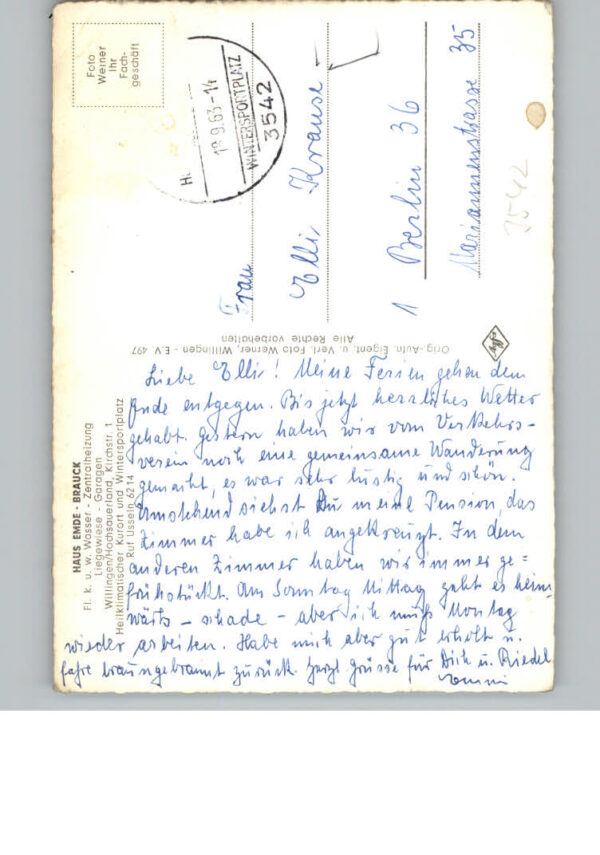 HAUS EMDE - BRAUCK
Fl. k. u. w. Wasser - Zentralheizung
Liegewiese - Garagen
Willingen/Hochsauerland, Kirchstr. 1
Heilklimatischer Kurort und Wintersportplatz
Ruf Usseln 6214
Liebe Elli! Meine Ferien gehen dem
Ende entgegen. Bis jetzt herrliches Wetter
gehabt. Gestern haben wir vom Verkehrs-
verein noch eine gemeinsame Wanderung
gemacht, es war sehr lustig und schön.
Umstehend siehst Du meine Pension, das
Zimmer habe ich angekreuzt. In dem
anderen Zimmer haben wir immer ge=
frühstückt. Am Sonntag Mittag geht es heim-
wärts - schade - aber ich muß Montag
wieder arbeiten. Habe mich aber gut erholt u.
fahre braungebrannt zurück. Herzl Grüsse für Dich u. Riedel
Emmi
Orig.-Aufn. Eigent. u. Verl. Foto Werner, Willingen - E.V. 497
Alle Rechte vorbehalten
Agfa
Foto
Weiner
Ihr
Fach-
geschäft
18.9.63-14
WINTERSPORTPLATZ
3542
Frau
Elli Krause
1 Berlin 36
Mariannenstrasse 35
3542